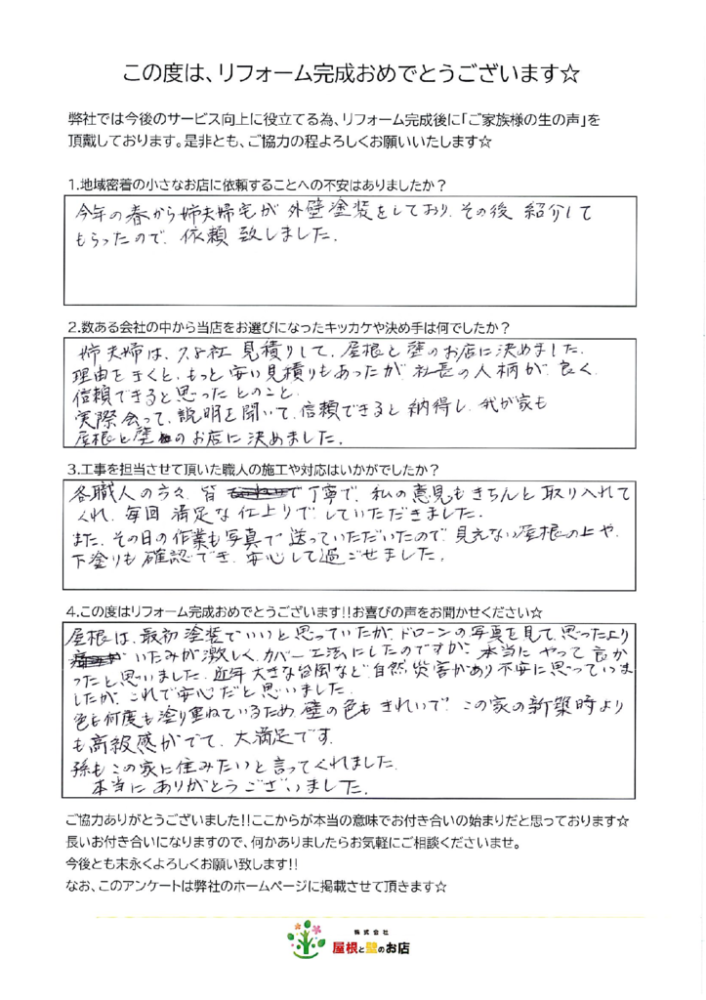 この度は、リフォーム完成おめでとうございます☆
弊社では今後のサービス向上に役立てる為、リフォーム完成後に「ご家族様の生の声」を
頂戴しております。是非とも、ご協力の程よろしくお願いいたします☆
1.地域密着の小さなお店に依頼することへの不安はありましたか？
今年の春から姉夫婦宅が外壁塗装をしており、その後 紹介して
もらったので、依頼致しました。
2.数ある会社の中から当店をお選びになったキッカケや決め手は何でしたか？
姉夫婦は、7.8社 見積りして、屋根と壁のお店に決めました。
理由をきくと、もっと安い見積りもあったが、社長の人柄が、良く、
信頼できると思ったとのこと。
実際会って、説明を聞いて、信頼できると納得し、我が家も
屋根と壁のお店に決めました。
3.工事を担当させて頂いた職人の施工や対応はいかがでしたか？
各職人の方々、皆 丁寧で、私の意見もきちんと取り入れて
くれ、毎回 満足な仕上りで、していただきました。
また、その日の作業も写真で送っていただいたので、見えない屋根の上や、
下塗りも確認でき、安心して過ごせました。
4.この度はリフォーム完成おめでとうございます!!お喜びの声をお聞かせください☆
屋根は、最初塗装でいいと思っていたが、ドローンの写真を見て、思ったより
いたみが激しく、カバー工法にしたのですが、本当にやって良か
ったと思いました。近年大きな台風など、自然災害があり不安に思っていま
したが、これで安心だと思いました。
色も何度も塗り重ねているため、壁の色もきれいで、この家の新築時より
も高級感がでて、大満足です。
孫もこの家に住みたいと言ってくれました。
本当にありがとうございました。
ご協力ありがとうございました!!ここからが本当の意味でお付き合いの始まりだと思っております☆
長いお付き合いになりますので、何かありましたらお気軽にご相談くださいませ。
今後とも末永くよろしくお願い致します!!
なお、このアンケートは弊社のホームページに掲載させて頂きます☆
株式会社
屋根と壁のお店